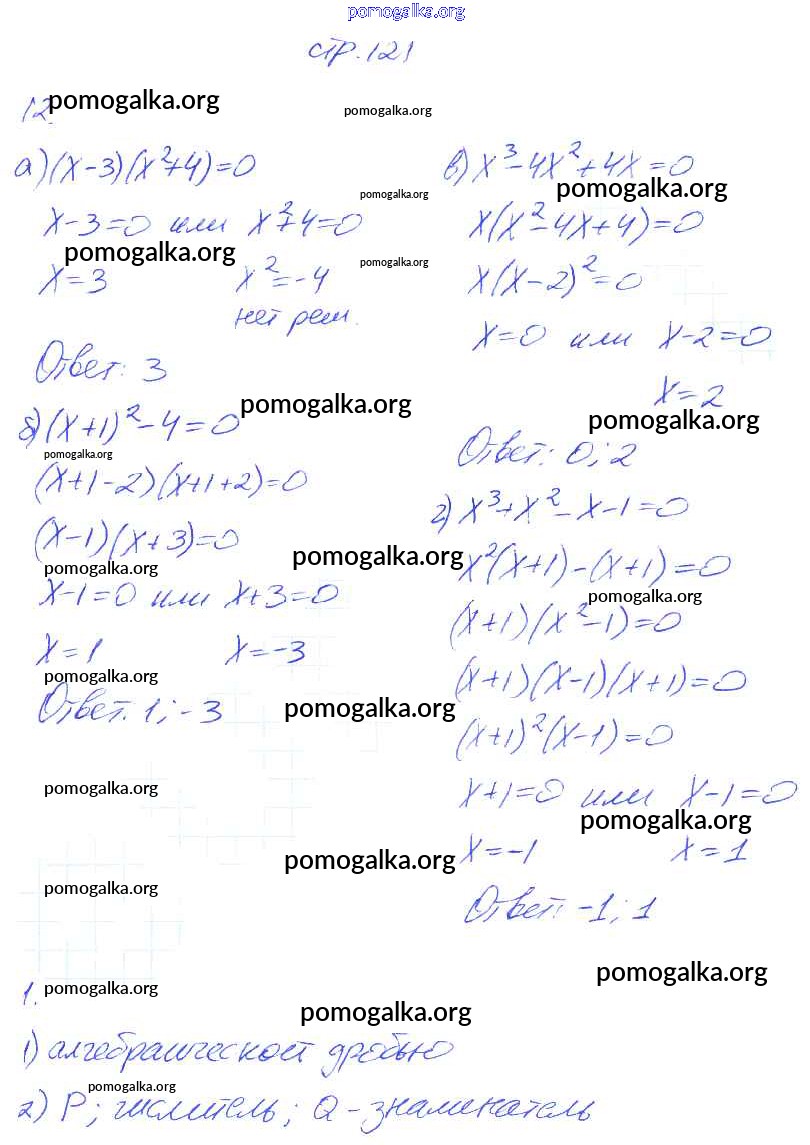 pomogalka.org
стр. 121
12. pomogalka.org
pomogalka.org
а) (x-3)(x²+4)=0
pomogalka.org
x-3=0 или x²+4=0
pomogalka.org
pomogalka.org
x=3 x²=-4
нет реш.
Ответ: 3
pomogalka.org
б) (x+1)²-4=0
pomogalka.org
(x+1-2)(x+1+2)=0
(x-1)(x+3)=0
pomogalka.org
pomogalka.org
x-1=0 или x+3=0
x=1 x=-3
pomogalka.org
Ответ. 1; -3
pomogalka.org
pomogalka.org
pomogalka.org
pomogalka.org
в) x³-4x²+4x=0
pomogalka.org
x(x²-4x+4)=0
x(x-2)²=0
x=0 или x-2=0
x=2
pomogalka.org
Ответ: 0; 2
г) x³+x²-x-1=0
x²(x+1)-(x+1)=0
pomogalka.org
(x+1)(x²-1)=0
(x+1)(x-1)(x+1)=0
(x+1)²(x-1)=0
x+1=0 или x-1=0
pomogalka.org
x=-1 x=1
Ответ: -1; 1
pomogalka.org
1. pomogalka.org
pomogalka.org
1) алгебраической дробью
pomogalka.org
2) P; числитель; Q-знаменатель